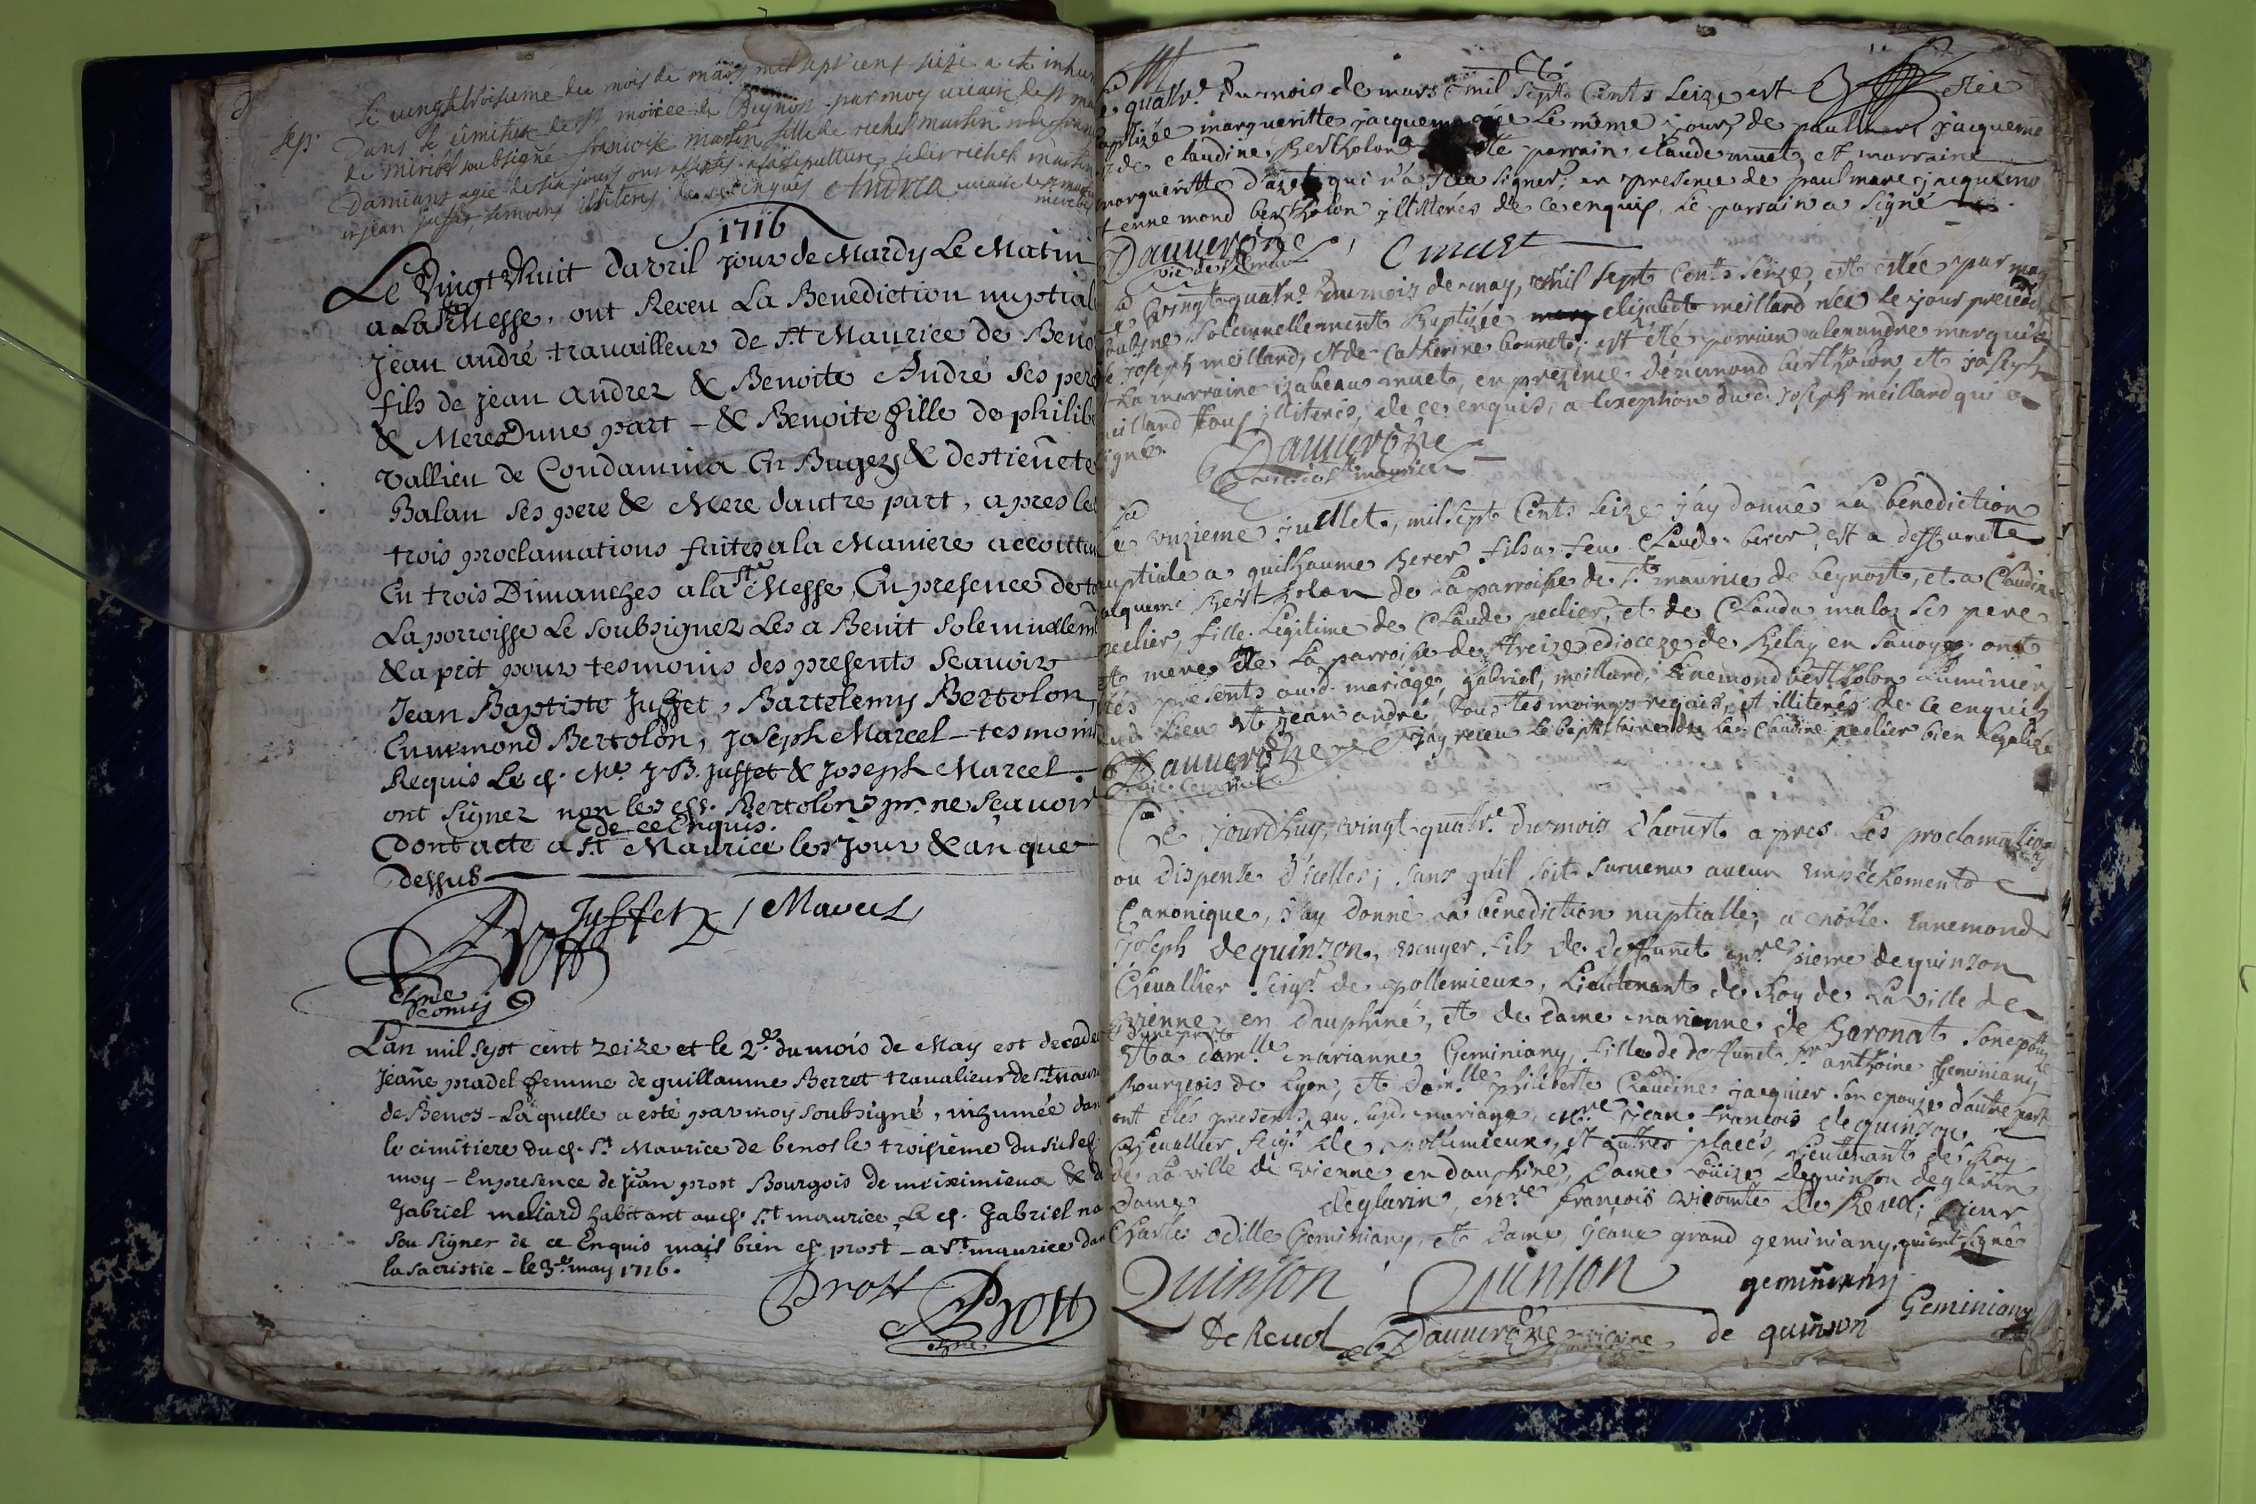 Le vingt troisieme du mois de mars mil sept cent seize a été inhu
sep. Dans le cimitiere de st morice de Beynos par moy vicaire de st ma
de miribel soubsigné francoise martin fille de michel martin
Damians agée de six jours ont assistés a la sepulture
et jean jusset, temoins illiterés de ce enquis Andrea vicaire de st mar
mirebel
1716
Le Vingt Huit davril jour de Mardy Le Matin
a La ste Messe, ont Receu La Benediction nuptial
jean andré travailleur de St Maurice de Beno
fils de jean andrez & Benoite André ses pere
& Mere Dune part - & Benoite fille de philib
vallieu de Condamina En Bugey & destienete
Balan ses pere & Mere dautre part, apres le
trois proclamations faites a la Maniere accoutu
En trois Dimanches a la ste Messe, En presence de to
La porroisse Le soubsignez Les a Benit solemnellem
& a prit pour tesmoins des presents Scavoir
Jean Baptiste Jusset, Bartelemy Bertolon
Ennemond Bertolon, Joseph Marcel - tesmoins
Requis Le d. Me J. B. Jusset & Joseph Marcel
ont signez non les dts. Bertolons pr. ne scavoir
de ce Enquis.
Dont acte a St Maurice les Jour & an que
dessus
Jusset Marcel
Prost
Lan mil sept cent zeize et le 2d. du mois de May est decedé
jeañe pradel femme de guillaume Berret travalieur de St Mauri
de Benos - Laquelle a esté par moy soubsigné, inhumée dan
le cimitiere du d. St Maurice de benos le troisieme du susd
moy - En presence de jean prost Bourgois de meiximieux & d
gabriel meliard habitant au d. St maurice, Le d. Gabriel na
seu signer de ce Enquis mais bien d. prost - a St maurice dan
la sacristie - le 3d. may 1716.
Prost Prost
Le quatre. Du mois de mars mil sept Cents seize est étée
aptizée margueritte jacqueme née Le même jour de paul marc jacqueme
t de claudine Bertholon été parrain claude muet et marraine
margueritte d'azet qui n'a sceu signer, en presence de paul marc jacqueme
t ennemond bertholon illiterés de ce enquis, Le parrain a signé
Dauuergne C muet
vic. de st maur
Le Vingt quatre. Du mois de may, mil sept Cents seize, est étée par moy
soulsigné solemnellement Baptizée elizabet meillard née Le jour precedt
de joseph meillard, et de Catherine bonnet, est été parrain alexandre marguin
t La marraine izabeau muet, en presence d'enemond bertholon et joseph
meilland tous illiterés, de ce enquis, a L'exeption dud. joseph meillard qui a
signé.
Dauuergne
vic. de st maurice
Le unzieme juillet, mil sept Cents seize j'ay donnée La benediction
nuptiale a guilhaume Berer fils a feu Claude berer et a deffuncte
aqueme Bertholon de La parroisse de St maurice de beynost, et a Claudine
peclier, fille Legitime de Claude peclier, et de Clauda maloz ses pere
et mere De La parroisse de treize dioceze de Belay en savoye ont
étés presents aud. mariage, gabriel meillard, Ennemond bertholon Luminier
dud. Lieu et jean andré tous tesmoings requis, et illiterés de ce enquis
Dauuergne j'ay receu Le baptistaire de Lad. Claudine peclier bien Legalizé
Ce jourdhuy, vingt quatre. Du mois D'aoust apres Les proclamations
ou dispense D'icelles, sans qu'il soit survenu aucun empêchement
Canonique, j'ay Donné La bénediction nuptialle, a noble Ennemond
Joseph dequinson, escuyer fils de Deffunct mre pierre dequinson
Chevallier seigr. de pollemieux, Lieutenant de Roy de La Ville de
vienne en Dauphiné, et de Dame marianne de Baronat son epouze
Dune part
Et a damlle marianne Geminiany, fille de deffunct sr. anthoine Geminiany
Bourgeois de Lyon, et Damlle philiberte Claudine jacquier son epouze d'autre part
ont étés presents au susd. mariage, mre jean francois dequinson
Chevallier seigr. de pollemieux, et autres places, Lieutenant de Roy
de La ville de vienne en dauphiné, Dame Loüize dequinson deglarin
Dame deglarin, mre françois vicomte de Revol, sieur
Charles odille Geminiany, et Dame jeane grand geminiany, qui ont signé
Quinson Quinson geminiany
Geminiany
De Revol Dauuergne vicaire de quinson